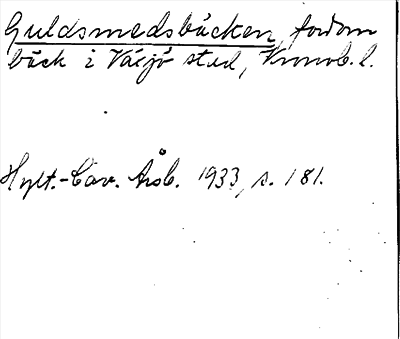 Guldsmedsbäcken, fordom
bäck i Växjö stad, Kronob. l.
Hylt.-Cav. Årsb. 1933, s. 181.